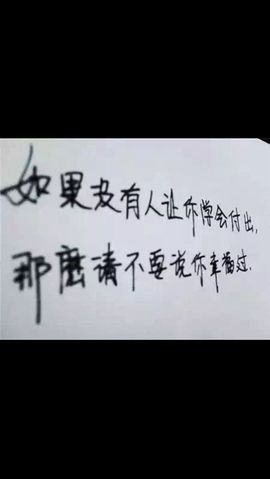 如果没有人让你学会付出,
那麽请不要说你幸福过.